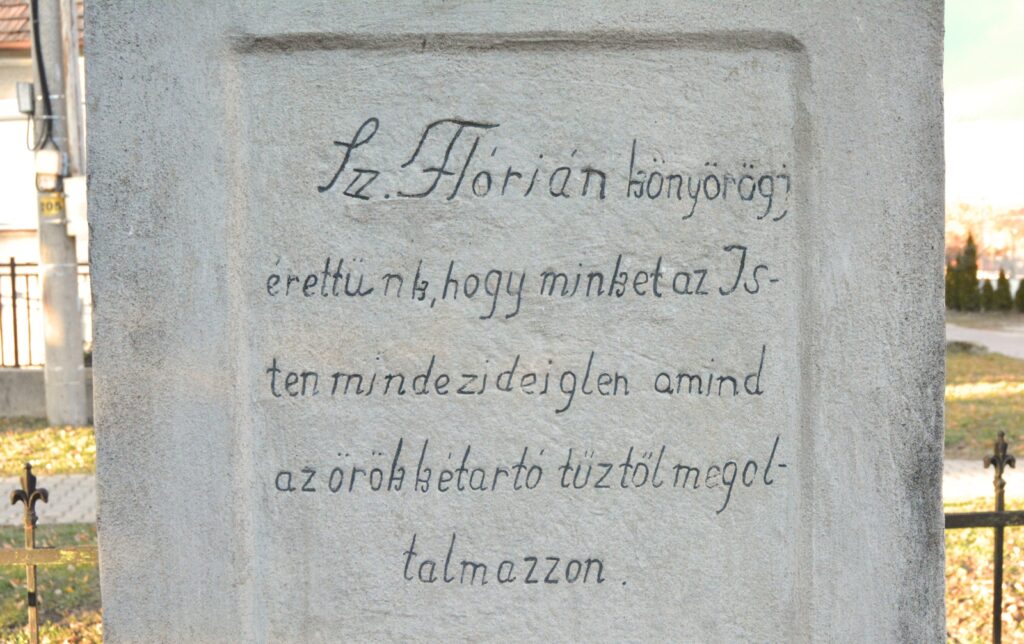 Sz. Flórián könyörögj
érettünk, hogy minket az Is-
ten mind ezideiglen amind
az örökkétartó tűztől megol-
talmazzon.
205